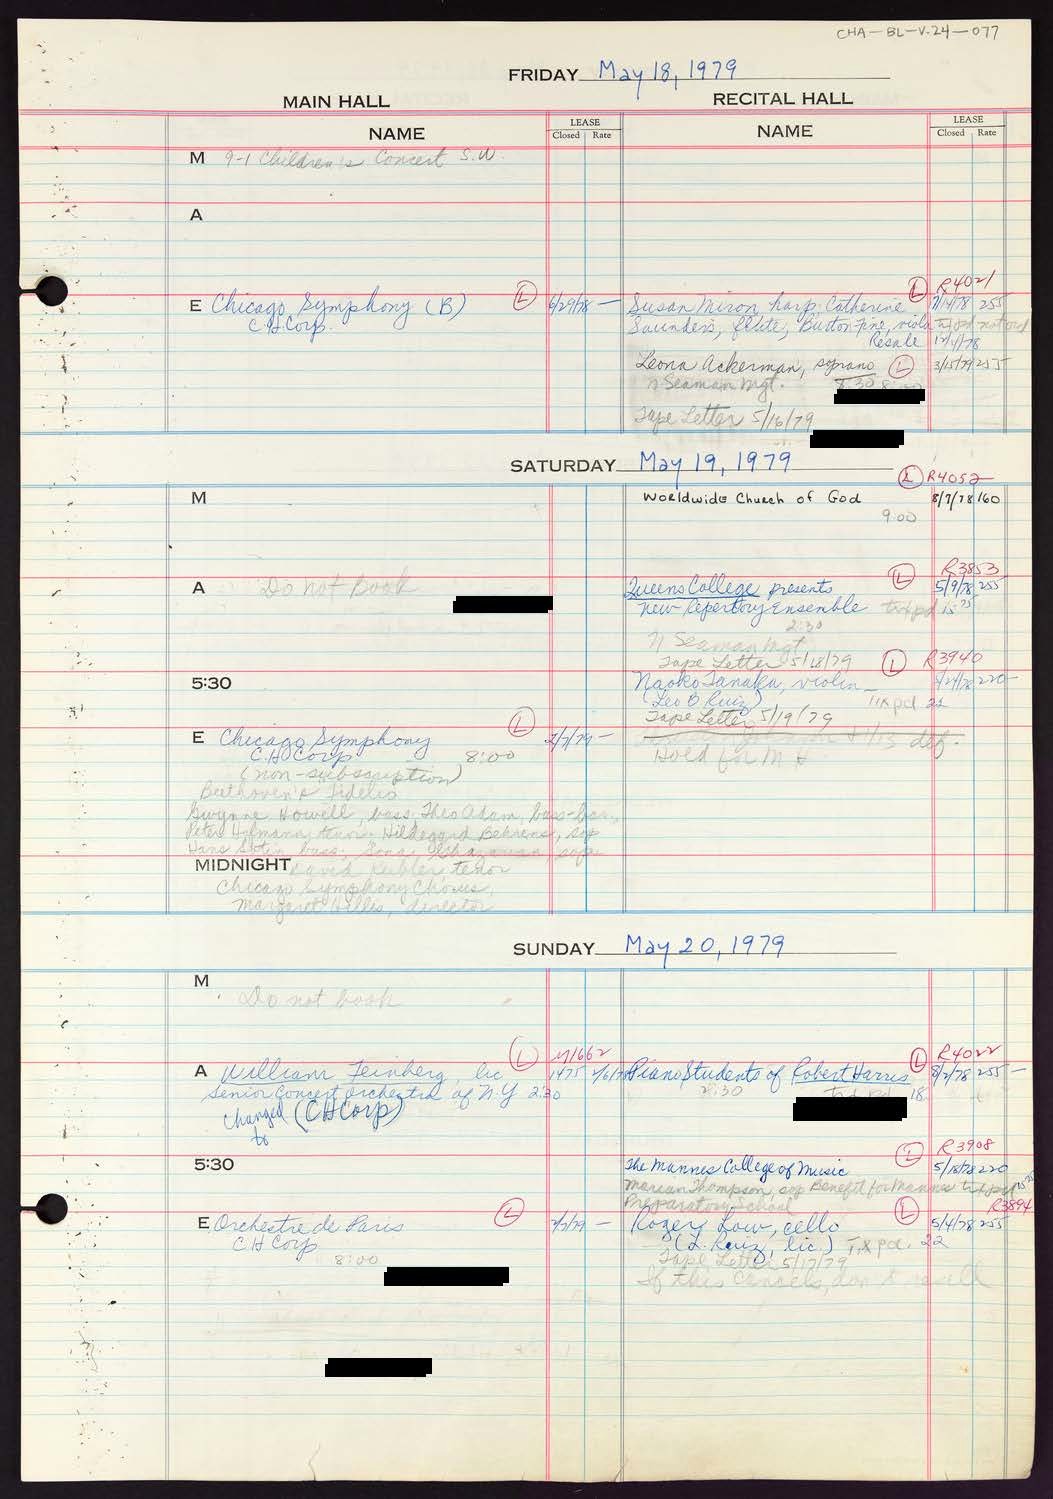 CHA-BL-V.24-077
FRIDAY May 18, 1979
MAIN HALL
RECITAL HALL
NAME
LEASE
Closed Rate
NAME
LEASE
Closed Rate
M 9-1 Children's Concert S.W.
A
E Chicago Symphony (B) L 6/29/78 —
C.H. Corp.
L R4021
Susan Miron, harp; Catherine 255
Saunders, flute, Burton Fine, viola
Resale 12/4/78
Leona Ackerman, soprano L 3/15/79 255
n Seaman Mgt. 8:30 8:00
Tape Letter 5/16/79
SATURDAY May 19, 1979
L R4052
M
Worldwide Church of God 8/7/78 160
9:00
A Do not Book
L R3853
Queens College presents 5/9/78 255
New Repertory Ensemble
2:30
n Seaman Mgt
Tape Letter 5/18/79
L R3940
5:30
Naoko Tanaka, violin 220
(Leo B Ruiz) Tix pd 22
Tape Letter 5/19/79
def.
Hold for M H
E Chicago Symphony L 2/7/79 —
C.H. Corp 8:00
(non-subscription)
Beethoven's Fidelio
Gwynne Howell, bass, Theo Adam, bass-bar.,
Peter Hofmann, tenor. Hildegard Behrens, sop
Hans Sotin bass; Sona Ghazarian, sop.
MIDNIGHT David Kubler, tenor
Chicago Symphony Chorus,
Margaret Hillis, director
SUNDAY May 20, 1979
M
Do not book
A William Feinberg, lic L M1662
1475
Senior Concert Orchestra of N.Y 2:30
Changed to (CH Corp)
L R4022
Piano Students of Robert Harris 8/2/78 255 —
2:30 18
5:30
L R3908
The Mannes College of Music 5/18/78 220
Marian Thompson, sop Benefit for Mannes
Preparatory School
E Orchestre de Paris L —
C H Corp
8:00
L R3894
Roger Low, cello 5/4/78 255
(L. Ruiz, lic.) Tix pd. 22
Tape Letter 5/17/79
If this cancels, don't resell